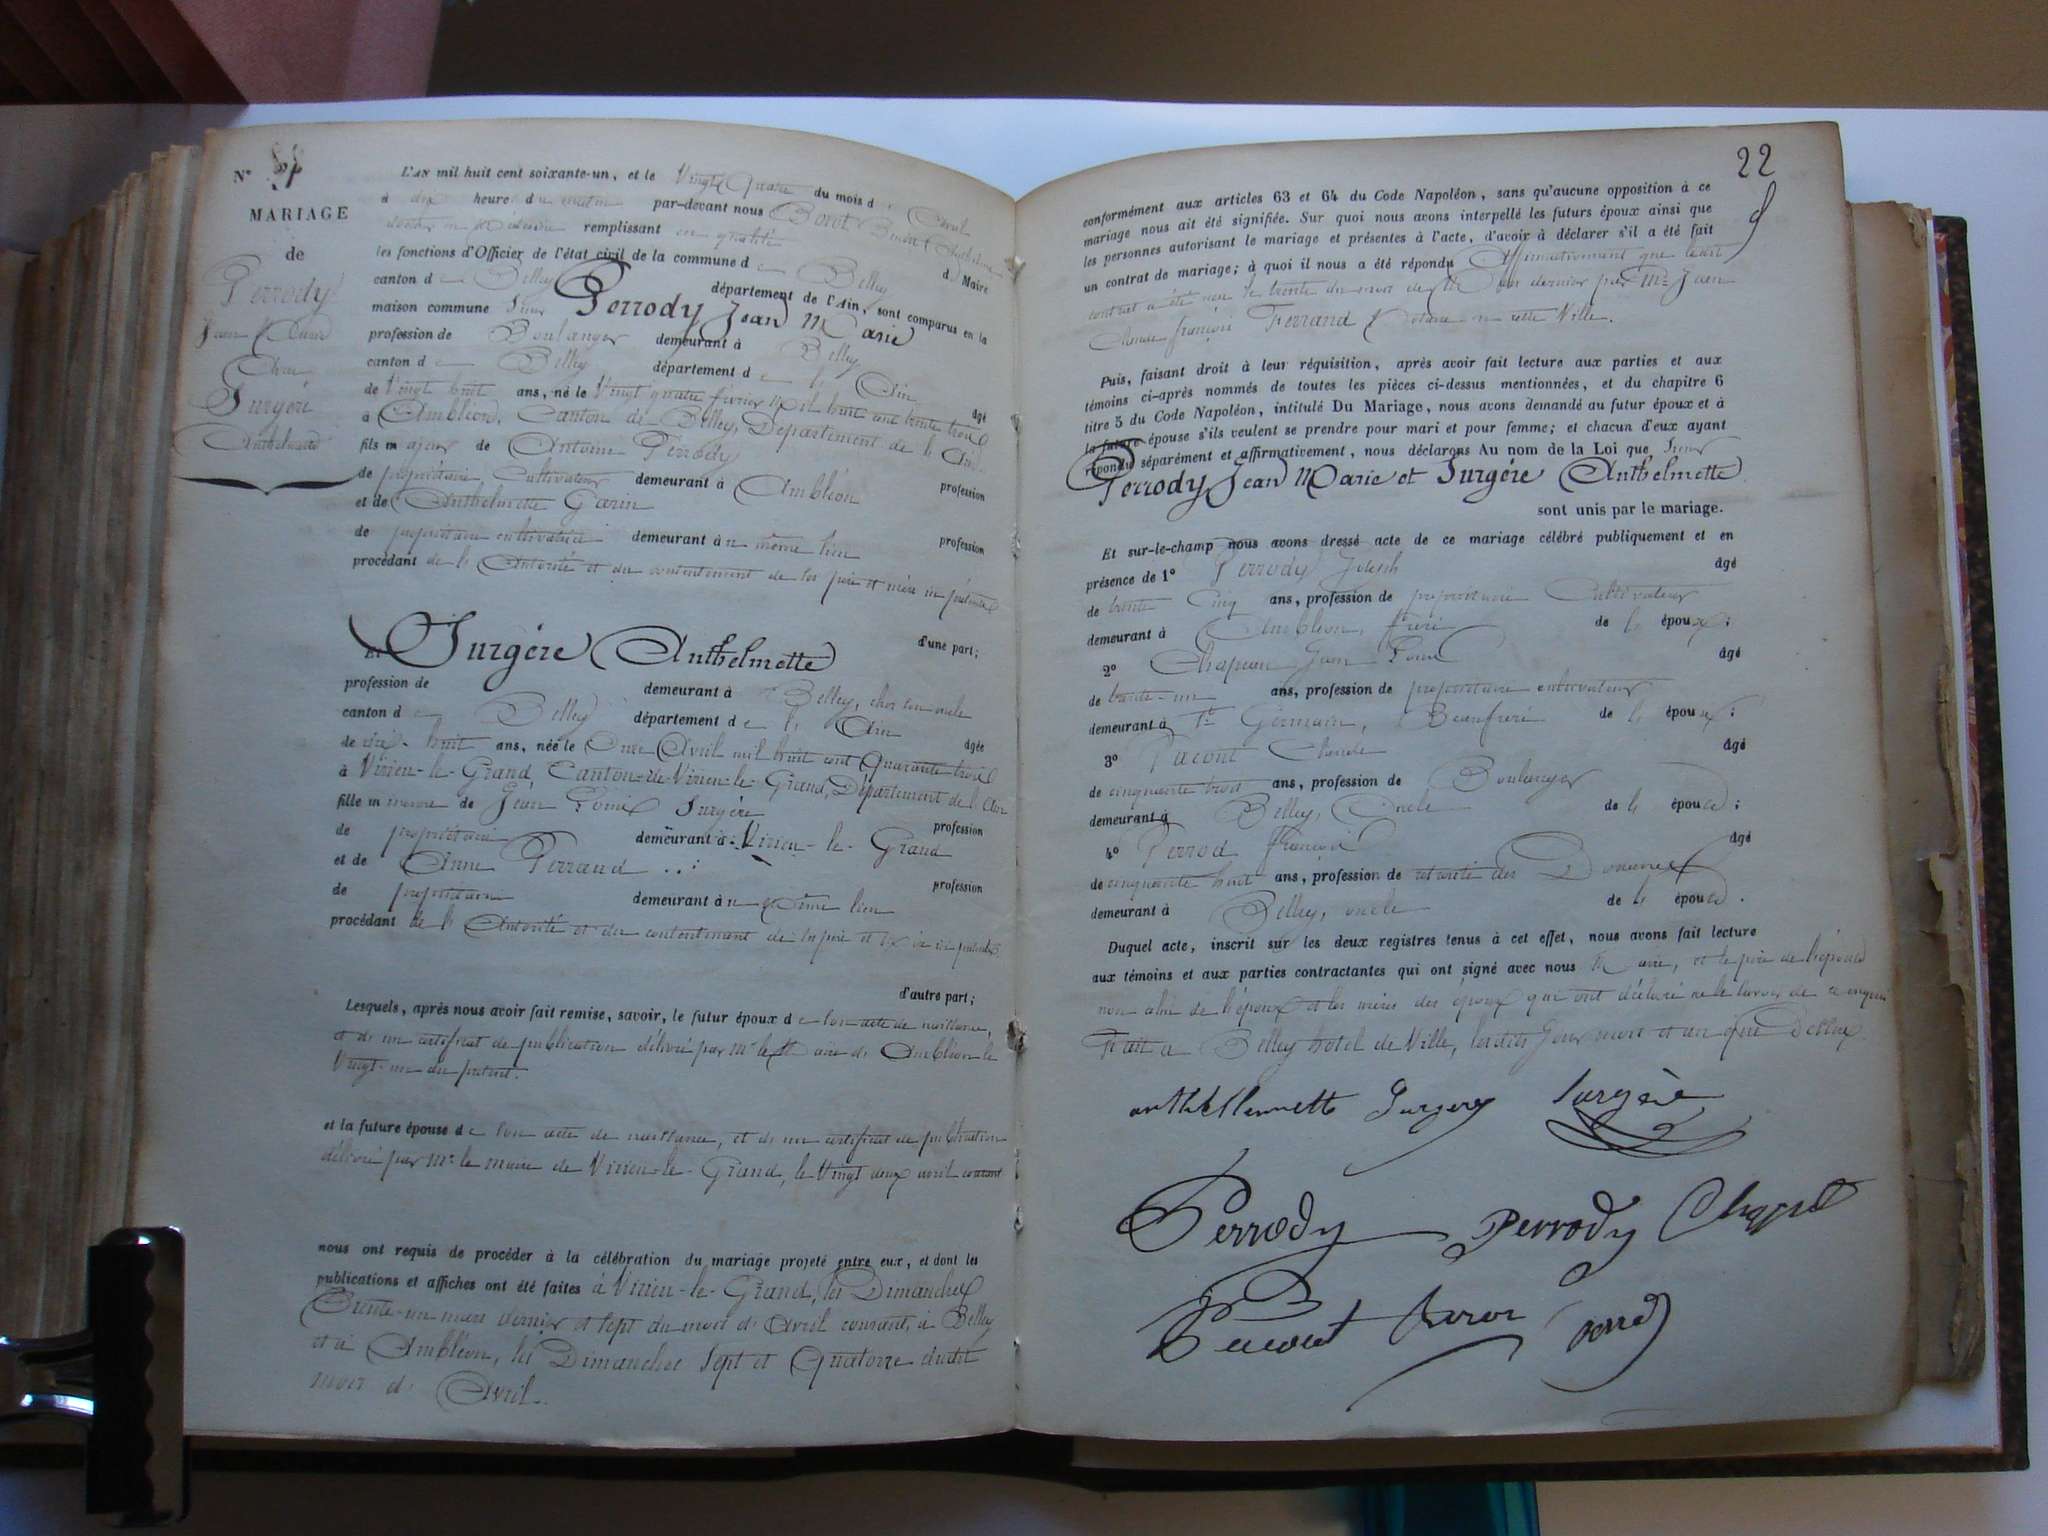 N° 21
MARIAGE
de
Perrody
Jean Marie
Avec
Surgère
Anthelmette
L'AN mil huit cent soixante-un, et le Vingt Quatre du mois d' Avril
à dix heure du matin par-devant nous Borot
docteur en Médecine remplissant en qualité d Maire
les fonctions d'Officier de l'état civil de la commune de Belley
canton de Belley département de l'Ain, sont comparus en la
maison commune Sieur Perrody Jean Marie
profession de Boulanger demeurant à Belley
canton de Belley département de l' Ain âgé
de Vingt huit ans, né le Vingt quatre février mil huit cent trente trois
à Ambléon, Canton de Belley, Département de l' Ain
fils majeur de Antoine Perrody profession
de propriétaire Cultivateur demeurant à Ambléon
et de Anthelmette Garin profession
de propriétaire cultivatrice demeurant à u même lieu
procédant de l' Autorité et du contentement de ses père et mère ici présents
d'une part;
Et Surgère Anthelmette
profession de demeurant à Belley, chez son oncle
canton de Belley département de l' Ain âgée
de dix-huit ans, née le Onze Avril mil huit cent Quarante trois
à Virieu-le-Grand, Canton-de-Virieu-le-Grand, Département de l'Ain
fille mineure de Jean Louis Surgère profession
de propriétaire demeurant à Virieu-le-Grand
et de Anne Perraud profession
de propriétaire demeurant à u même lieu
procédant de l' Autorité et du contentement de ses père et mère ici présents
d'autre part;
Lesquels, après nous avoir fait remise, savoir, le futur époux de son acte de naissance,
et d'un certificat de publication délivré par Mr le Maire d' Ambléon le
Vingt-un du présent.
et la future épouse de son acte de naissance, et d'un certificat de publication
délivré par Mr le maire de Virieu-le-Grand, le Vingt deux avril courant
nous ont requis de procéder à la célébration du mariage projeté entre eux, et dont les
publications et affiches ont été faites à Virieu-le-Grand, les Dimanches
Trente-un mars dernier et sept du mois d'Avril courant, à Belley
et à Ambléon, les Dimanches Sept et Quatorze dudit
mois d' Avril.
22
conformément aux articles 63 et 64 du Code Napoléon, sans qu'aucune opposition à ce
mariage nous ait été signifiée. Sur quoi nous avons interpellé les futurs époux ainsi que
les personnes autorisant le mariage et présentes à l'acte, d'avoir à déclarer s'il a été fait
un contrat de mariage; à quoi il nous a été répondu Affirmativement que ledit
contrat a été reçu le trente du mois de Mars dernier par Me Jean
François Ferrand Notaire en cette Ville.
Puis, faisant droit à leur réquisition, après avoir fait lecture aux parties et aux
témoins ci-après nommés de toutes les pièces ci-dessus mentionnées, et du chapitre 6
titre 5 du Code Napoléon, intitulé Du Mariage, nous avons demandé au futur époux et à
la future épouse s'ils veulent se prendre pour mari et pour femme; et chacun d'eux ayant
répondu séparément et affirmativement, nous déclarons Au nom de la Loi que Sieur
Perrody Jean Marie et Surgère Anthelmette
sont unis par le mariage.
Et sur-le-champ nous avons dressé acte de ce mariage célébré publiquement et en
présence de 1° Perrody Joseph âgé
de trente Cinq ans, profession de propriétaire Cultivateur
demeurant à Ambléon, frère de l' époux;
2° Jean Louis âgé
de trente-un ans, profession de propriétaire cultivateur
demeurant à St Germain, Beaufrère de l' époux;
3° Pacout Claude âgé
de cinquante trois ans, profession de Boulanger
demeurant à Belley, Oncle de l' épouse;
4° Perrod François âgé
de cinquante huit ans, profession de retraité des Douanes
demeurant à Belley, oncle de l' épouse.
Duquel acte, inscrit sur les deux registres tenus à cet effet, nous avons fait lecture
aux témoins et aux parties contractantes qui ont signé avec nous Maire, et le père de l'épouse
non celui de l'époux et les mères des époux qui ont déclaré ne le savoir de ce enquis
Fait à Belley hotel de Ville, lesdits Jour mois et an que Dessus
anthellemette Surgere Surgère
Perrody Perrody
Pacout Borot Perrod